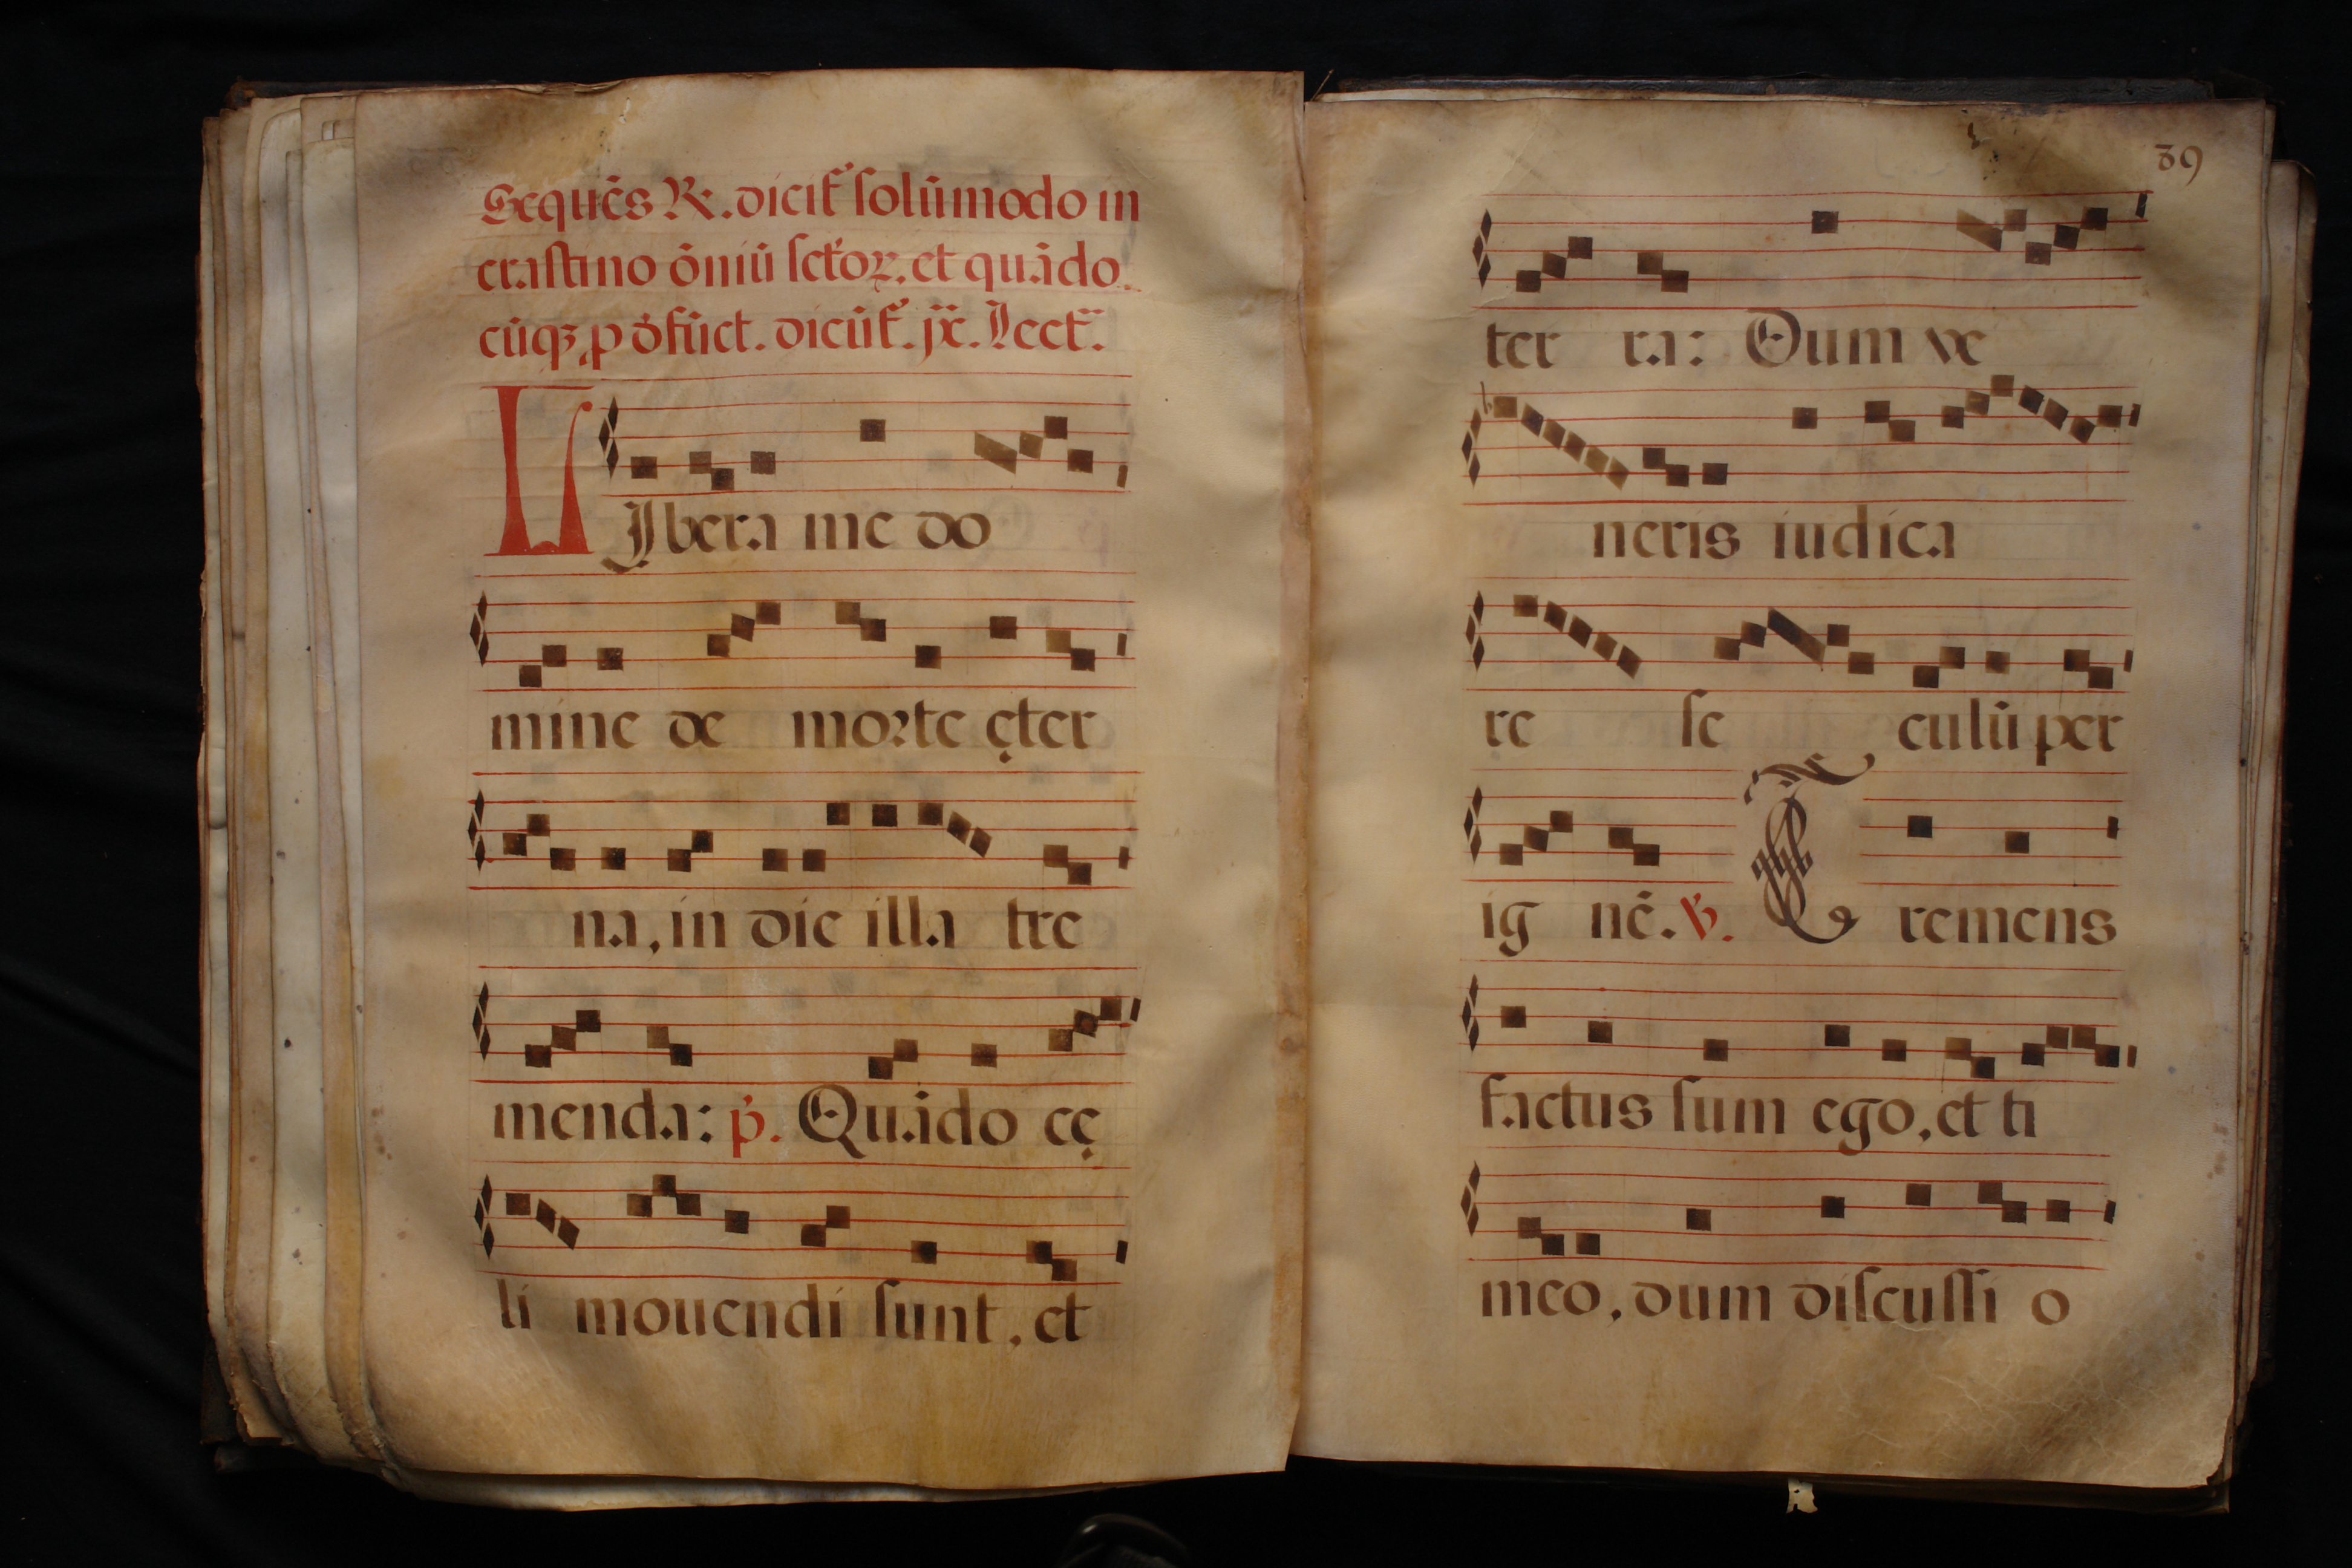 Sequẽs R. dicit̃ ſolũmodo in
craſtino õniũ ſct̃oꝝ. et quãdo
cũqꝫ, p õfũct. dicũt̃. jx̃. Lect̃.
LIbera me do
mine de morte ęter
na, in die illa tre
menda: p̃. Quãdo cę
li mouendi ſunt, et
89
ter ra: Dum ve
neris iudica
re ſe culũ per
ig nẽ. Ṽ. Tremens
factus ſum ego, et ti
meo, dum diſcuſſi o